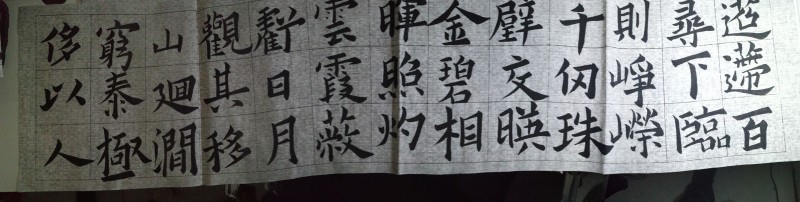 迢遰百
尋下臨
則崢嶸
千仞珠
璧交暎
金碧相
暉照灼
雲霞蔽
虧日月
觀其移
山廻澗
窮泰極
侈以人